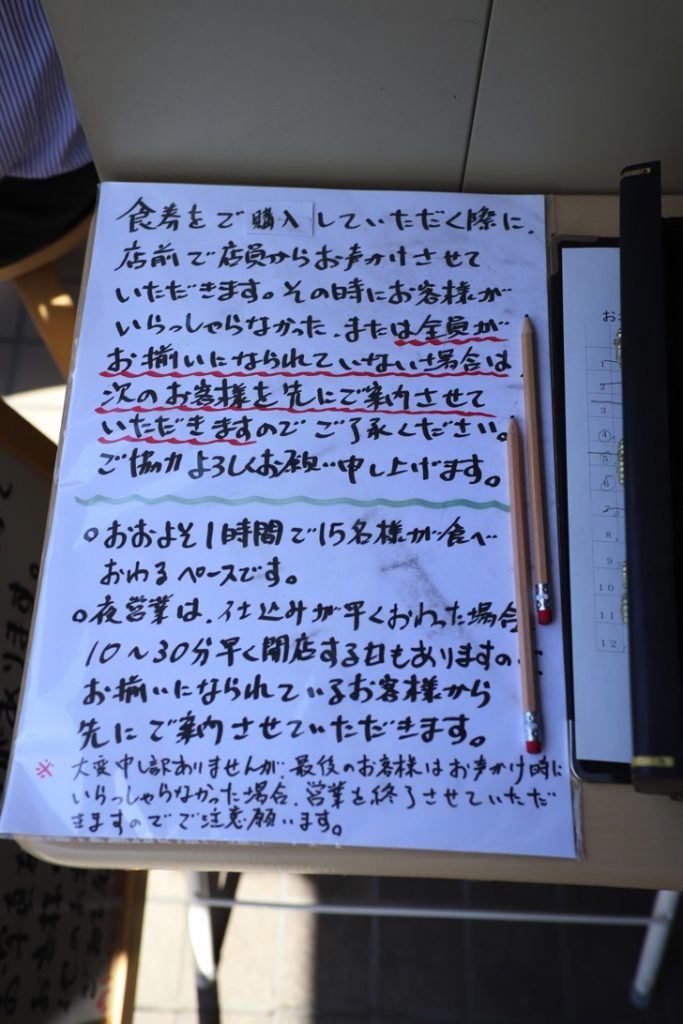 食券をご購入していただく際に、
店前で店員からお声かけさせて
いただきます。その時にお客様が
いらっしゃらなかった、または全員が
お揃いになられていない場合は、
次のお客様を先にご案内させて
いただきますのでご了承ください。
ご協力よろしくお願い申し上げます。
○おおよそ1時間で15名様が食べ
おわるペースです。
○夜営業は、仕込みが早くおわった場合
10〜30分早く開店する日もありますの
お揃いになられているお客様から
先にご案内させていただきます。
※大変申し訳ありませんが、最後のお客様はお声かけ時に
いらっしゃらなかった場合、営業を終了させていただ
きますのでご注意願います。
お
1
2
3
4
5
6
7
8
9
10
11
12